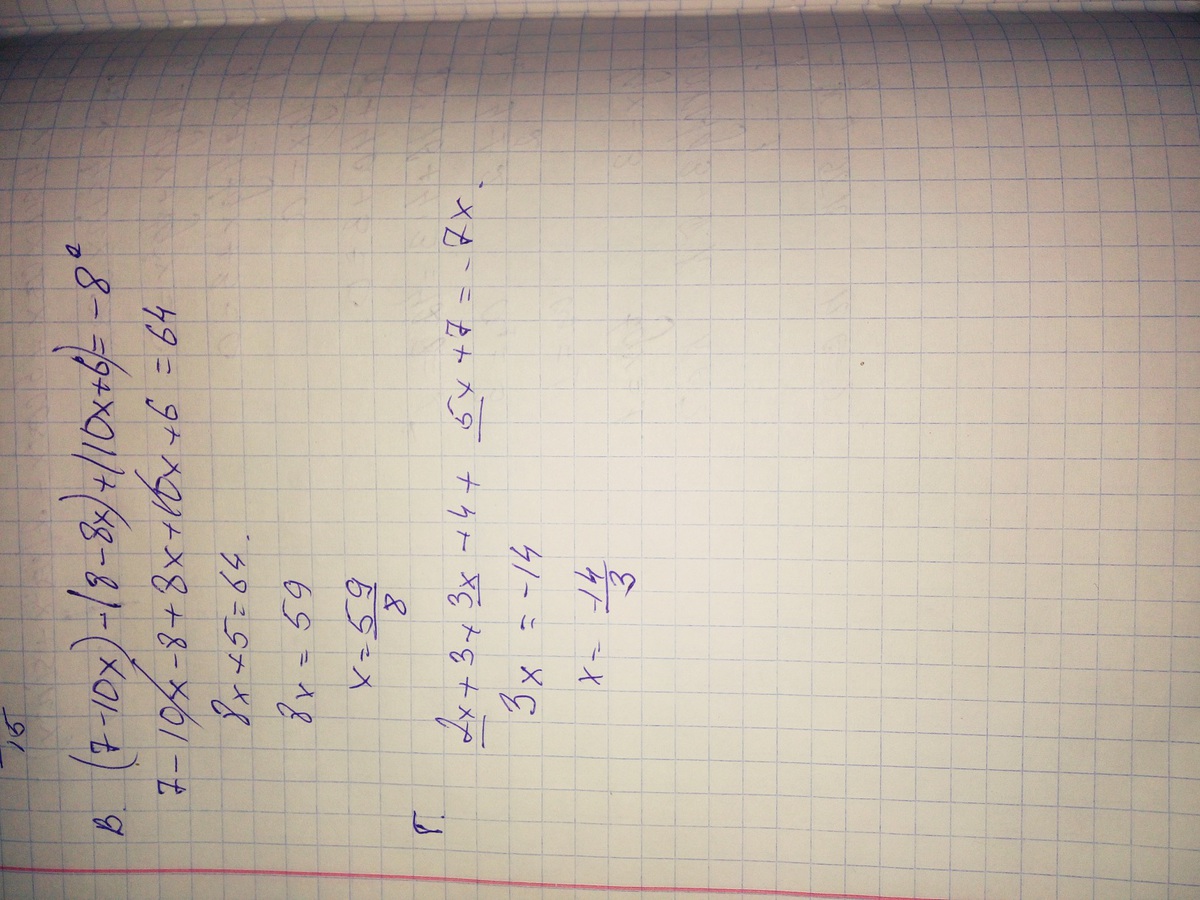 15
В. (7-10x)-(8-8x)+(10x+6)=-8²
7-10x-8+8x+10x+6=64
8x+5=64.
8x=59
x=59/8
Г. 2x+3+3x-14+5x+7=-7x.
3x=-14
x=-14/3